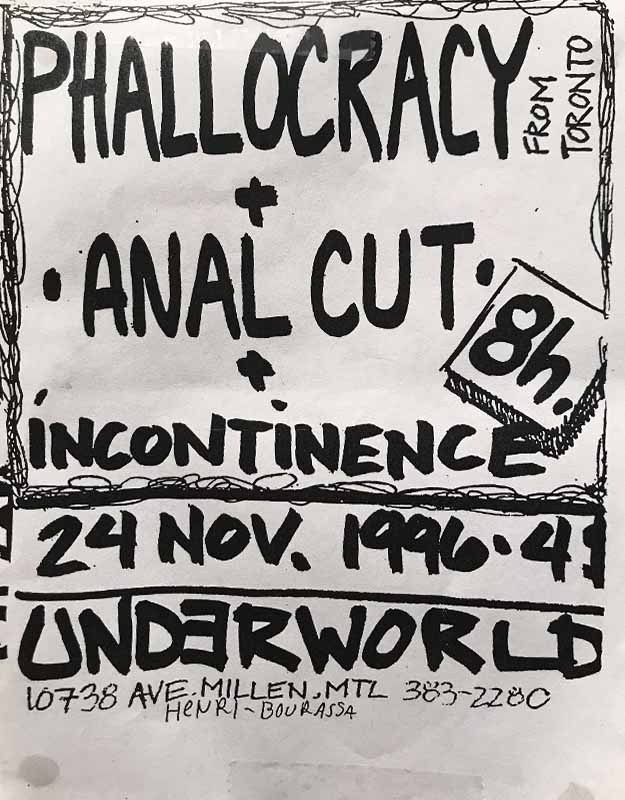 PHALLOCRACY
FROM
TORONTO
+
· ANAL CUT ·
+
8h.
INCONTINENCE
24 NOV. 1996 · 4$
UNDERWORLD
10738 AVE. MILLEN, MTL 383-2280
HENRI-BOURASSA